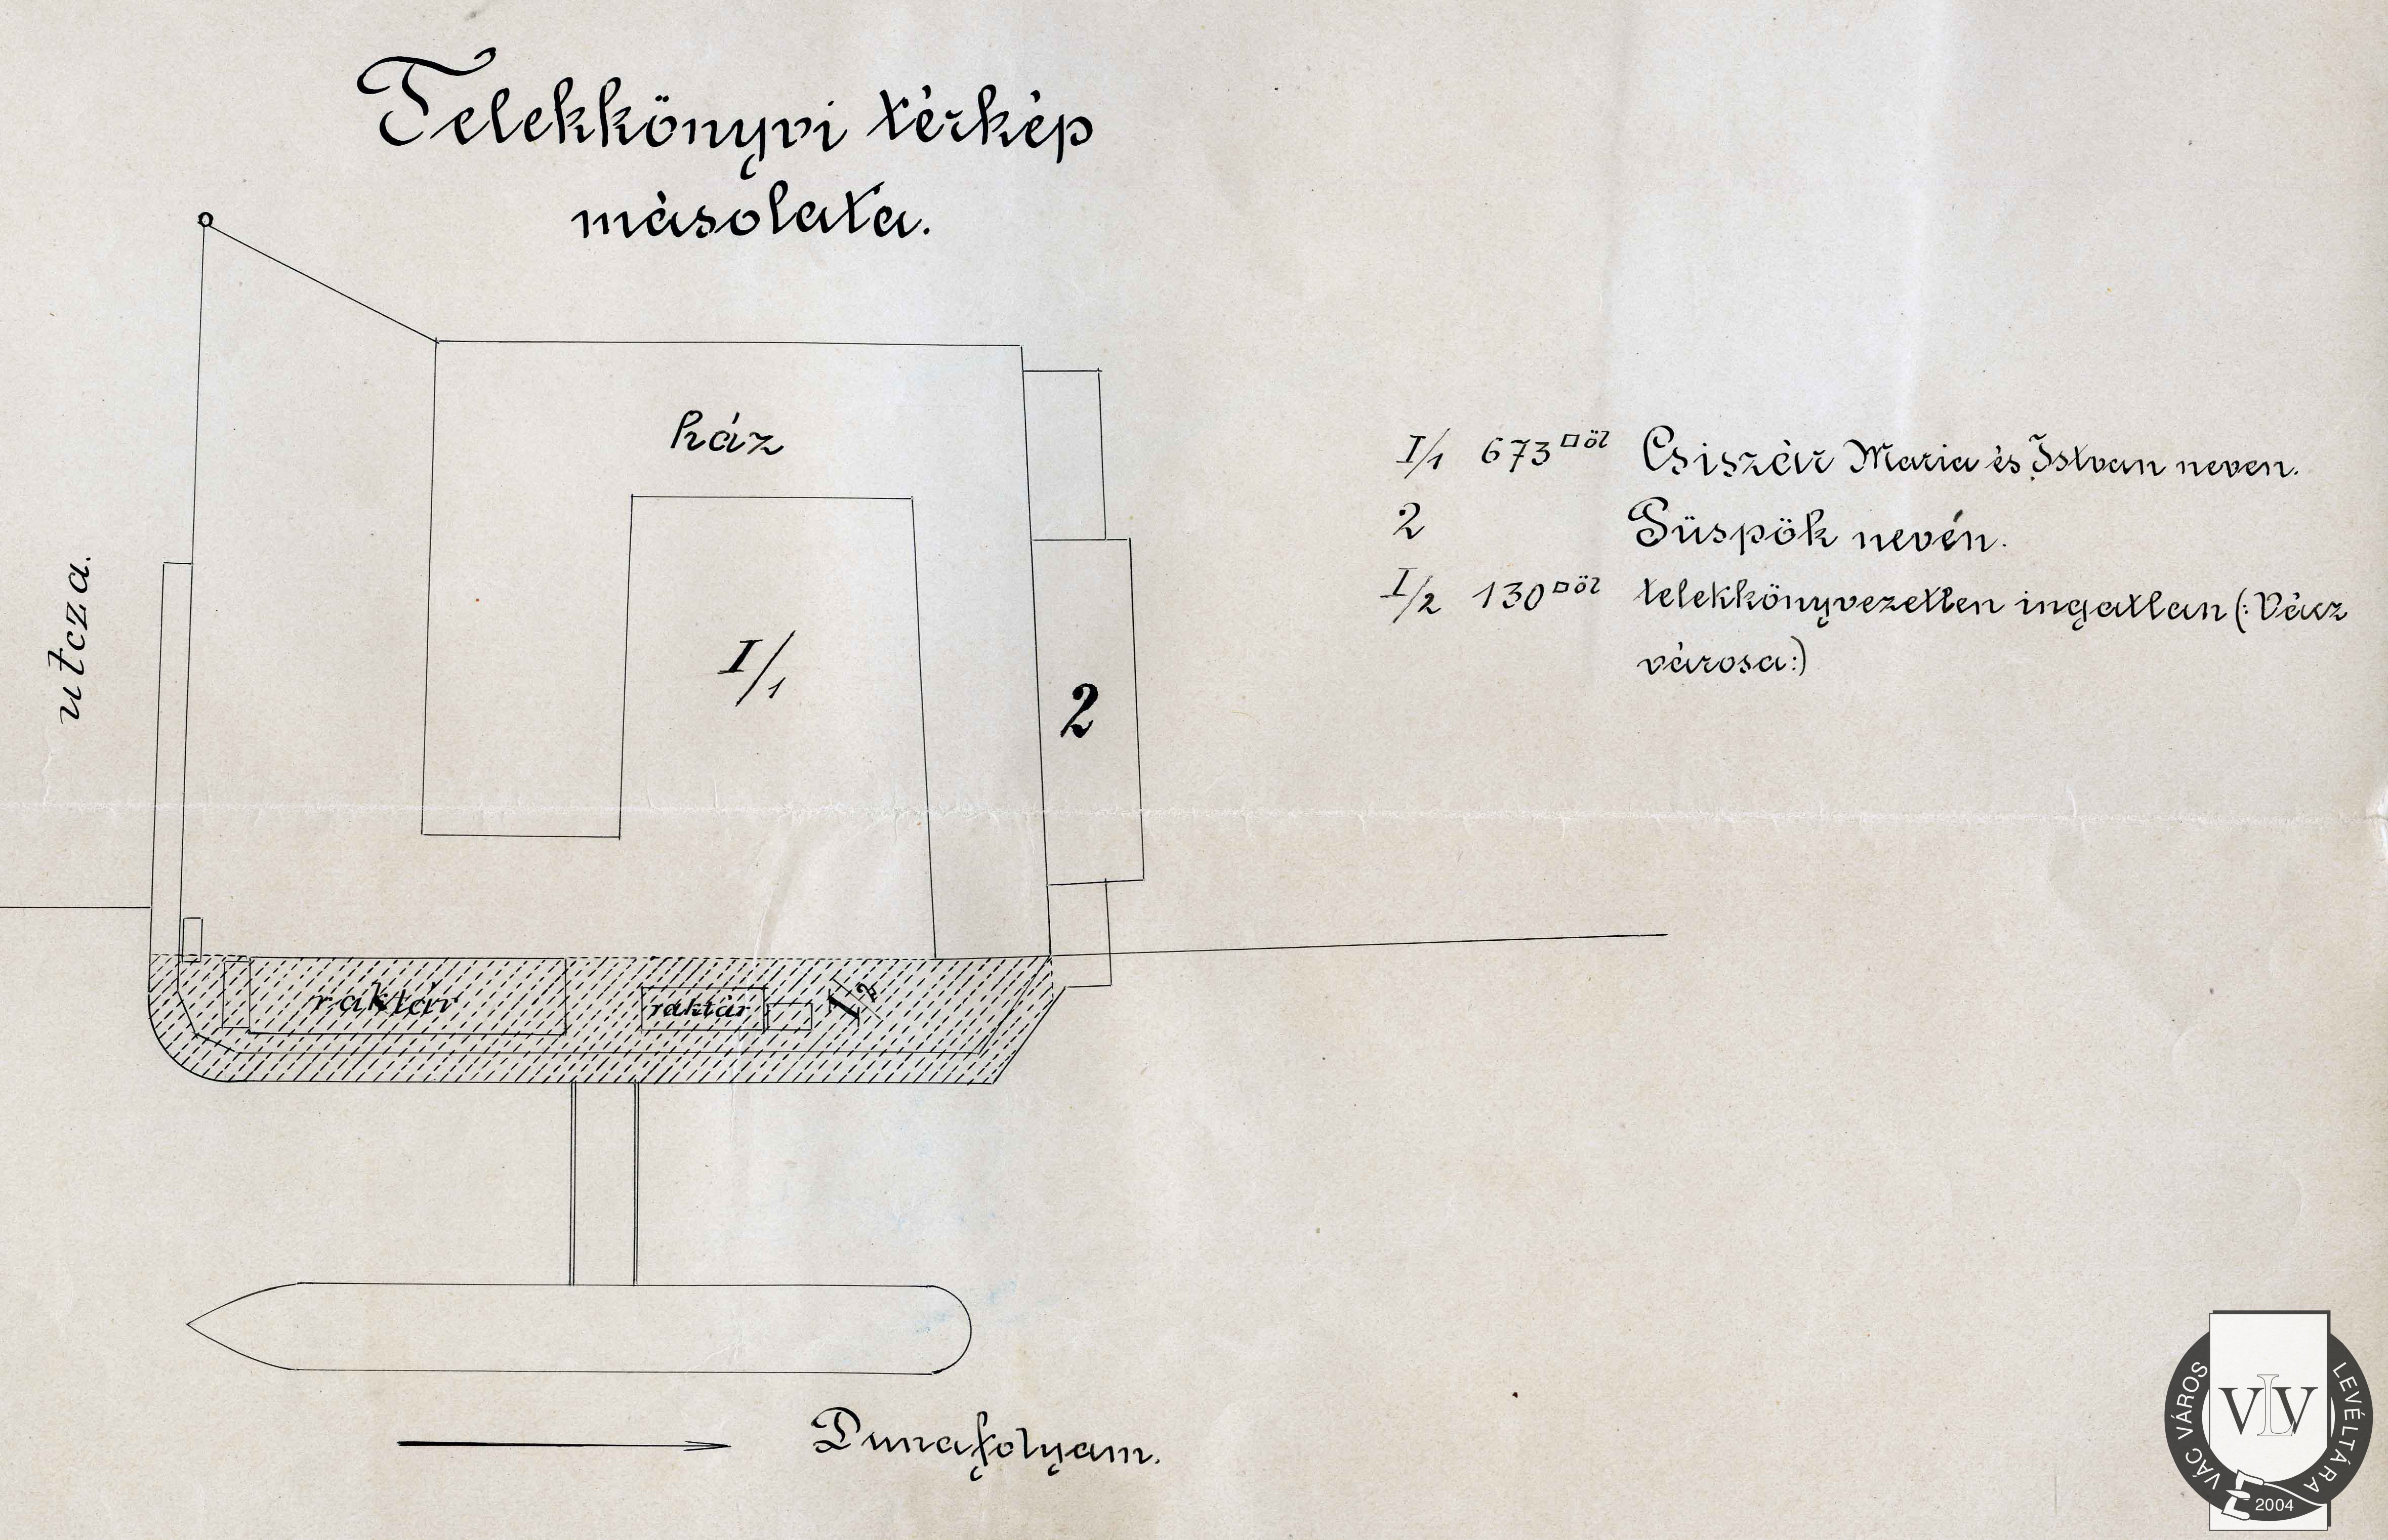 Telekkönyvi térkép
másolata.
ház
I/1 673 □öl Csiszár Maria és Istvan neven.
2 Püspök nevén.
I/2 130 □öl telekkönyvezetlen ingatlan (: Vácz
városa:)
utcza.
I/1
2
raktár
raktár
I/2
Dunafolyam.
VÁC VÁROS LEVÉLTÁRA
VLV
2004